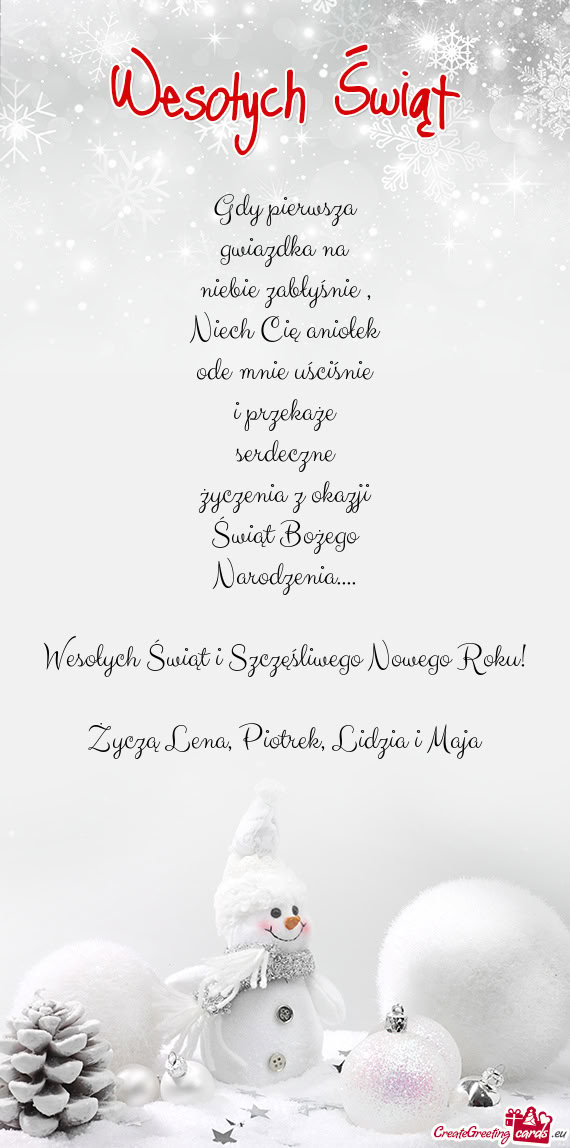 Wesołych Świąt
Gdy pierwsza
gwiazdka na
niebie zabłyśnie ,
Niech Cię aniołek
ode mnie uściśnie
i przekaże
serdeczne
życzenia z okazji
Świąt Bożego
Narodzenia....
Wesołych Świąt i Szczęśliwego Nowego Roku!
Życzą Lena, Piotrek, Lidzia i Maja
CreateGreetingcards.eu